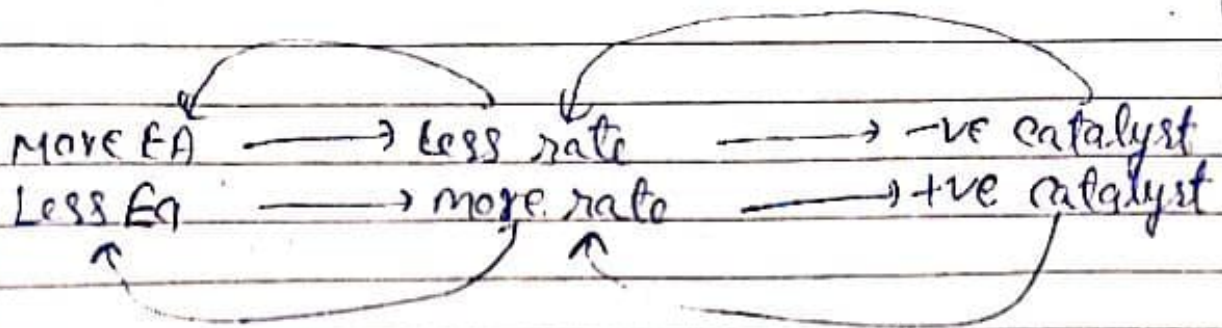 More EA → Less rate → -ve catalyst
Less Ea → more rate → +ve catalyst